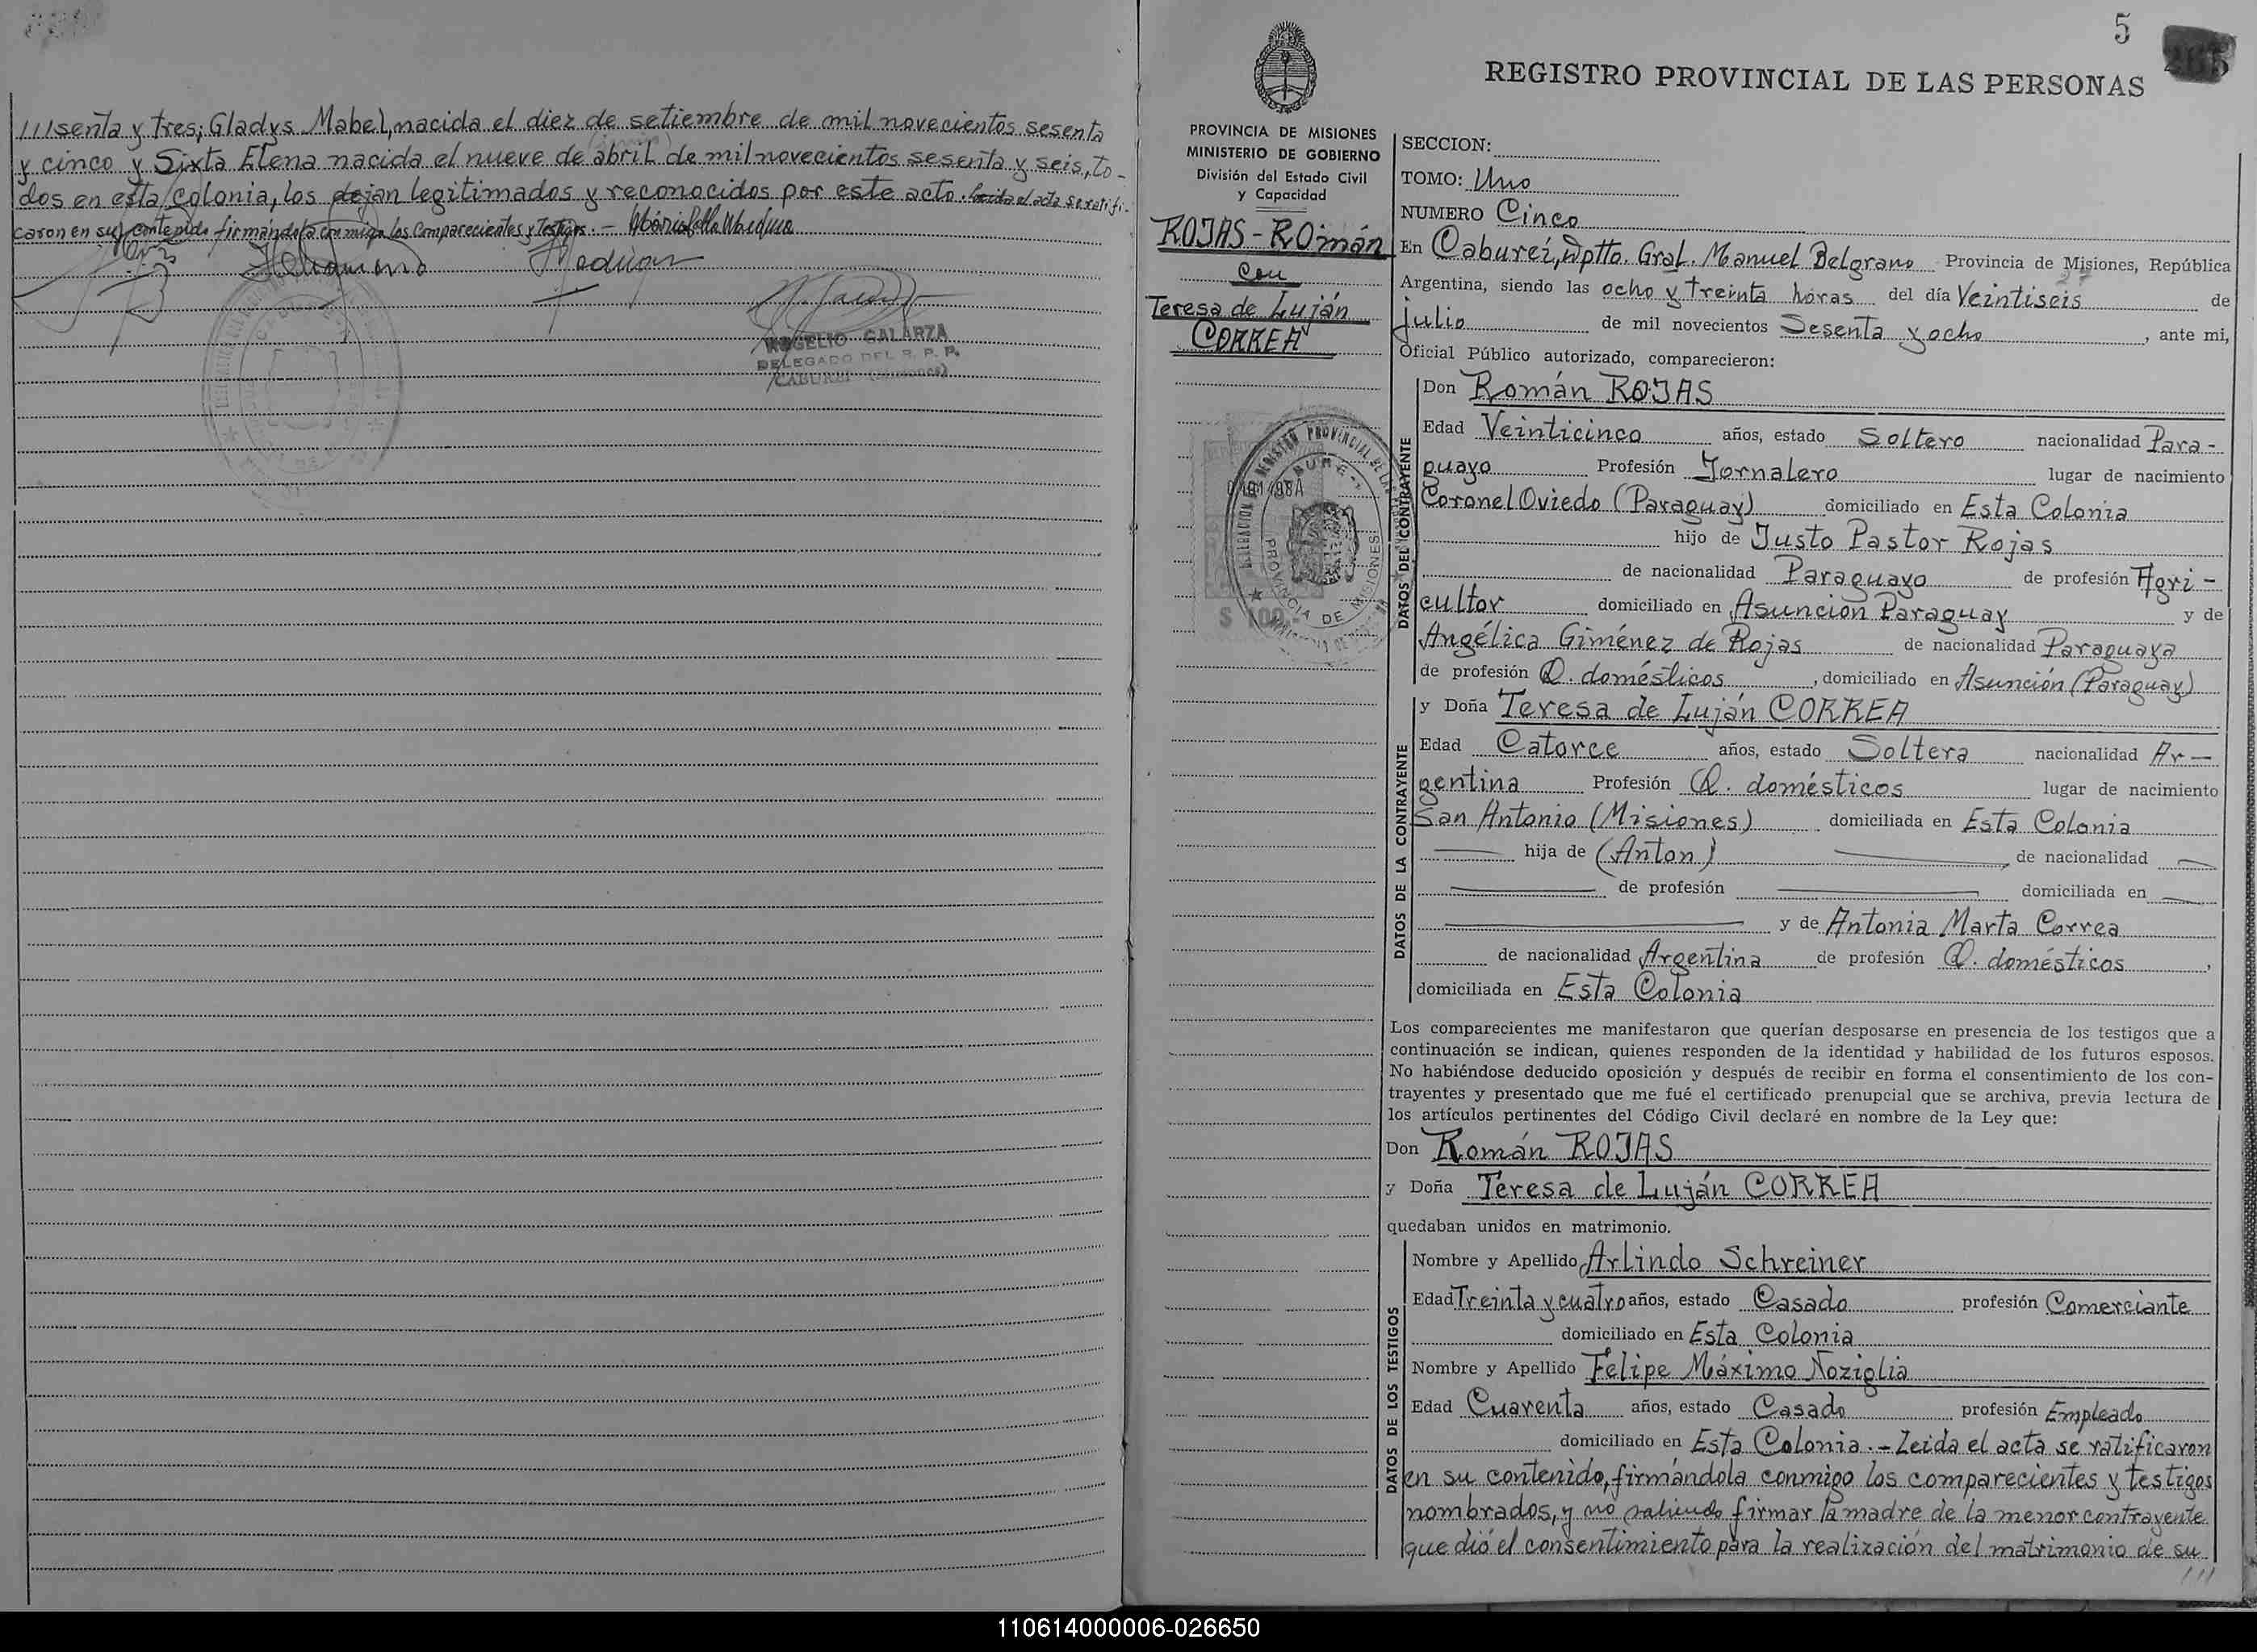 ///senta y tres; Gladys Mabel, nacida el diez de setiembre de mil novecientos sesenta
y cinco y Sixta Elena nacida el nueve de abril de mil novecientos sesenta y seis, to-
dos en esta colonia, los dejan legitimados y reconocidos por este acto. Leida el acta se ratifi-
caron en su contenido firmándola conmigo los comparecientes y testigos. —
ROGELIO GALARZA
DELEGADO DEL R. P. P.
CABUREI (Misiones)
5
REGISTRO PROVINCIAL DE LAS PERSONAS
PROVINCIA DE MISIONES
MINISTERIO DE GOBIERNO
División del Estado Civil
y Capacidad
ROJAS - ROmán
con
Teresa de Luján
CORREA
DELEGACION REGISTRO PROVINCIAL DE LAS
PROVINCIA DE MISIONES
$ 100
SECCION:
TOMO: Uno
NUMERO Cinco
En Caburei, Dptto. Gral. Manuel Belgrano Provincia de Misiones, República
Argentina, siendo las ocho y treinta horas del día Veintiseis de
julio de mil novecientos Sesenta y ocho, ante mi,
Oficial Público autorizado, comparecieron:
DATOS DEL CONTRAYENTE
Don Román ROJAS
Edad Veinticinco años, estado Soltero nacionalidad Para-
guayo Profesión Jornalero lugar de nacimiento
Coronel Oviedo (Paraguay) domiciliado en Esta Colonia
hijo de Justo Pastor Rojas
de nacionalidad Paraguayo de profesión Agri-
cultor domiciliado en Asunción Paraguay y de
Angélica Giménez de Rojas de nacionalidad Paraguaya
de profesión Q. domésticos, domiciliado en Asunción (Paraguay)
DATOS DE LA CONTRAYENTE
y Doña Teresa de Luján CORREA
Edad Catorce años, estado Soltera nacionalidad Ar-
gentina Profesión Q. domésticos lugar de nacimiento
San Antonio (Misiones) domiciliada en Esta Colonia
hija de (Anton) de nacionalidad
de profesión domiciliada en
y de Antonia Marta Correa
de nacionalidad Argentina de profesión Q. domésticos,
domiciliada en Esta Colonia
Los comparecientes me manifestaron que querían desposarse en presencia de los testigos que a
continuación se indican, quienes responden de la identidad y habilidad de los futuros esposos.
No habiéndose deducido oposición y después de recibir en forma el consentimiento de los con-
trayentes y presentado que me fué el certificado prenupcial que se archiva, previa lectura de
los artículos pertinentes del Código Civil declaré en nombre de la Ley que:
Don Román ROJAS
y Doña Teresa de Luján CORREA
quedaban unidos en matrimonio.
DATOS DE LOS TESTIGOS
Nombre y Apellido Arlindo Schreiner
Edad Treinta y cuatro años, estado Casado profesión Comerciante
domiciliado en Esta Colonia
Nombre y Apellido Felipe Máximo Noziglia
Edad Cuarenta años, estado Casado profesión Empleado
domiciliado en Esta Colonia. - Leida el acta se ratificaron
en su contenido, firmándola conmigo los comparecientes y testigos
nombrados, y no sabiendo firmar la madre de la menor contrayente
que dió el consentimiento para la realización del matrimonio de su
///
110614000006-026650